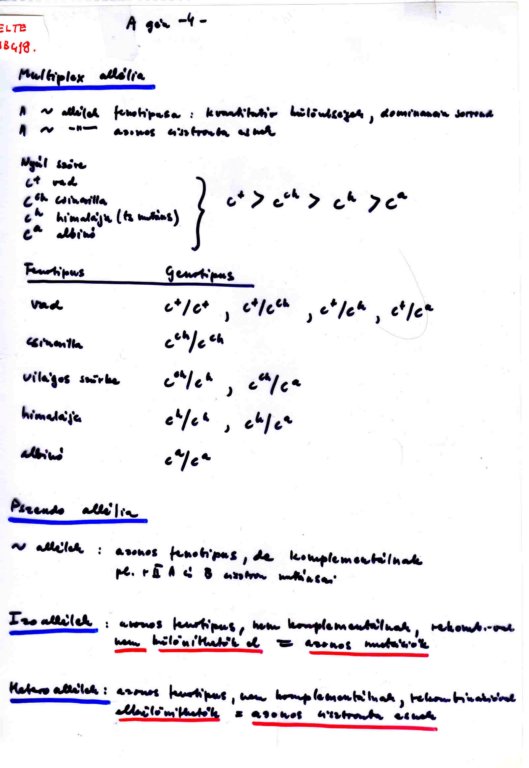 ELTE
A gén -4-
Multiplex allélia
A ~ allélek fenotipusa : kvantitativ különbségek, dominancia sorrend
A ~ -"- azonos cisztronba esnek
Nyúl szőre
c⁺ vad
c^ch csincsilla
c^h himalája (ts mutáns)
c^a albinó
c⁺ > c^ch > c^h > c^a
Fenotipus Genotipus
vad c⁺/c⁺ , c⁺/c^ch , c⁺/c^h , c⁺/c^a
csincsilla c^ch/c^ch
világos szürke c^ch/c^h , c^ch/c^a
himalája c^h/c^h , c^h/c^a
albinó c^a/c^a
Pszeudo allélia
~ allélek : azonos fenotipus, de komplementálnak
pl. r II A és B cisztron mutánsai
Izoallélek : azonos fenotipus, nem komplementálnak,
nem különíthetők el = azonos mutációk
Heteroallélek : azonos fenotipus, nem komplementálnak, rekombinációval
elkülöníthetők = azonos cisztronba esnek